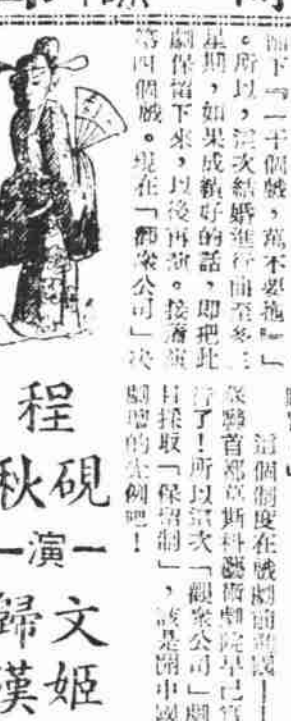 下『一千個戲，萬不要拖』」
。所以，這次結婚進行曲至多三
星期，如果成績好的話，即把此
劇保留下來，以後再演。接着演
第四個戲。現在「觀衆公司」決
這個制度在戲劇的祖國——
蘇聯首都莫斯科藝術劇院早已實
行了！所以這次「觀衆公司」劇
目採取「保留制」，該是開中國
劇壇的先例吧！
程
硯秋
—演—
文姬
歸漢